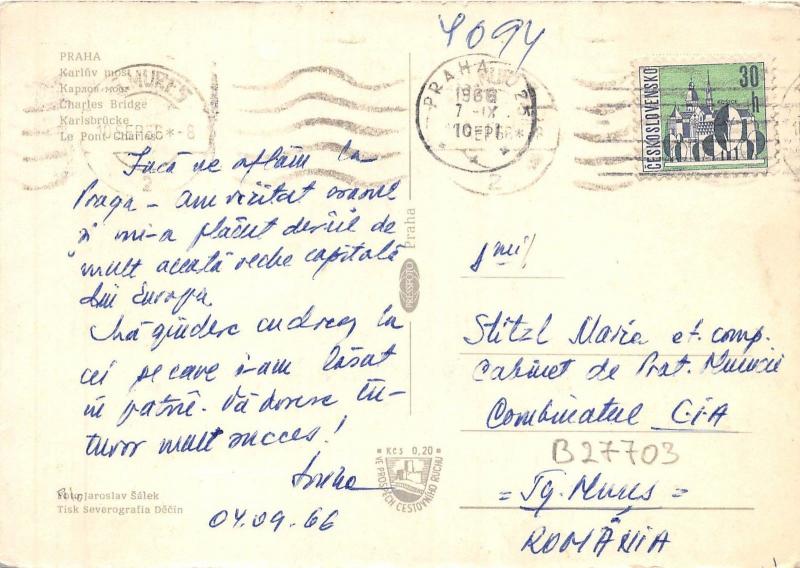 4094
PRAHA
Karlův most
Карлов мост
Charles Bridge
Karlsbrücke
Le Pont Charles
PRAHA
1966
7 -IX
10
2
ČESKOSLOVENSKO
30 h
Încă ne aflăm la
Praga - am vizitat orașul
și mi-a plăcut
mult această veche capitală
din Europa
Mă gîndesc cu drag la
cei pe care i-am lăsat
în patrie. Vă doresc tu-
turor mult succes!
04.09.66
Praha
PRESSFOTO
Stitzl Maria et. comp.
Cabinet de Prot. Muncii
Combinatul C.I.A
B27703
= Tg. Mureș =
ROMÂNIA
Kčs 0,20
VE PROSPĚCH CESTOVNÍHO RUCHU
Foto Jaroslav Šálek
Tisk Severografia Děčín